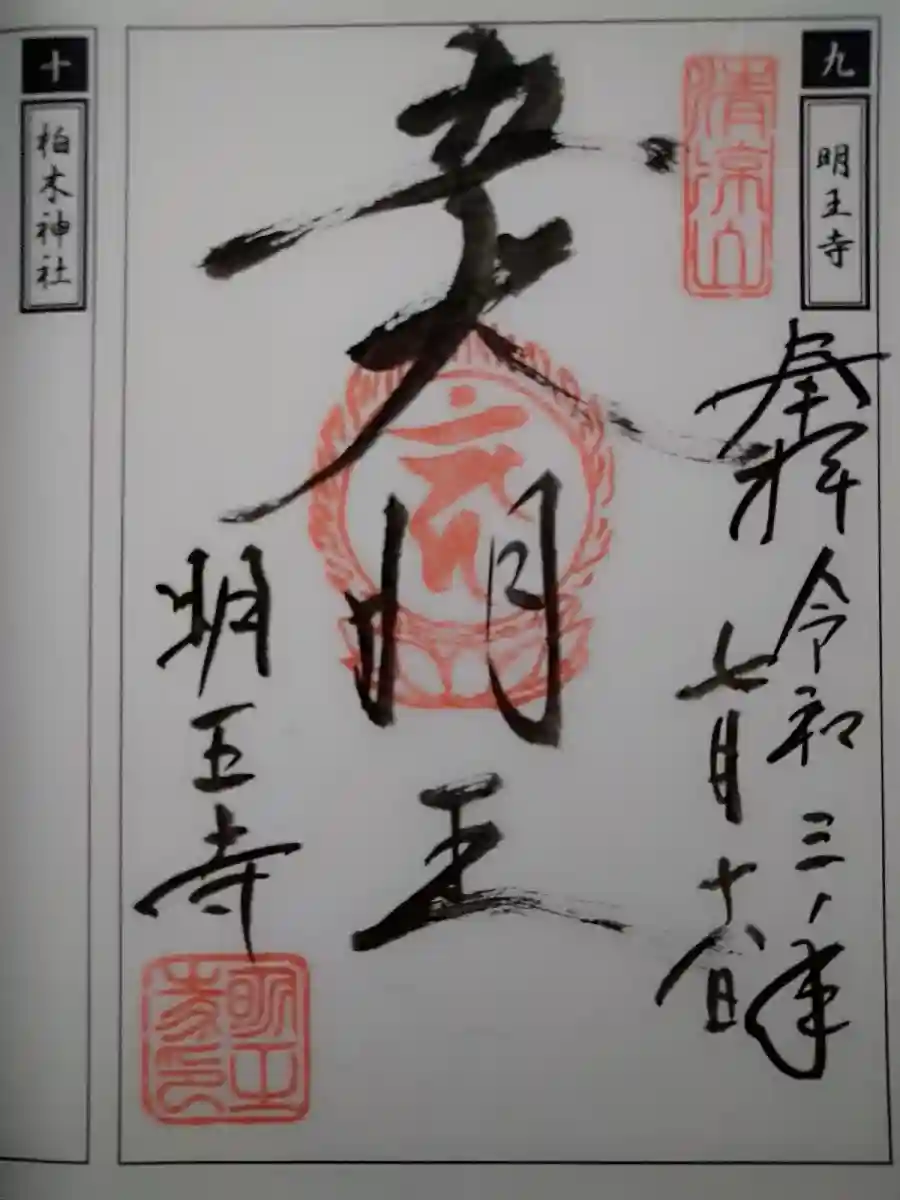 九
明王寺
清涼山
奉拝 令和三年
七月十八日
夫明王
明王寺
明王寺印
十
柏木神社